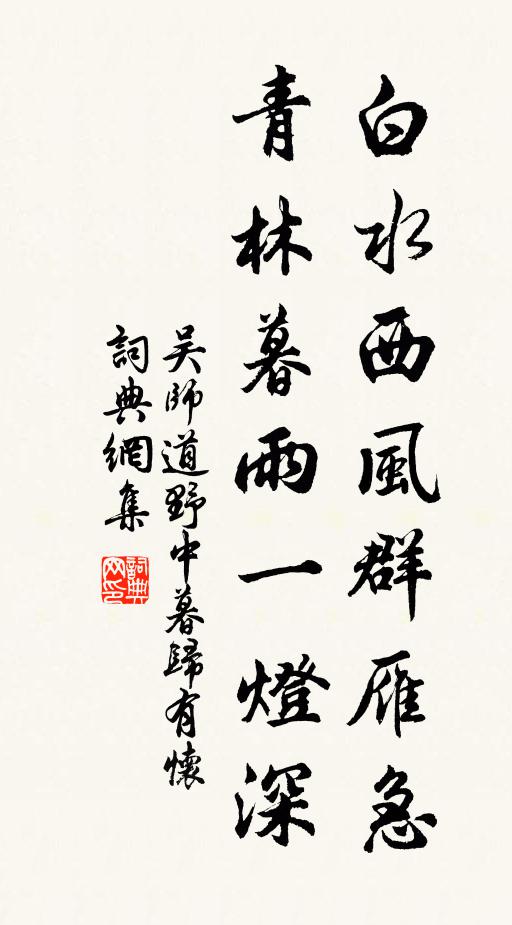 白水西風群雁急
青林暮雨一燈深
吴師道野中暮歸有懷
詞典網集
詞典网印